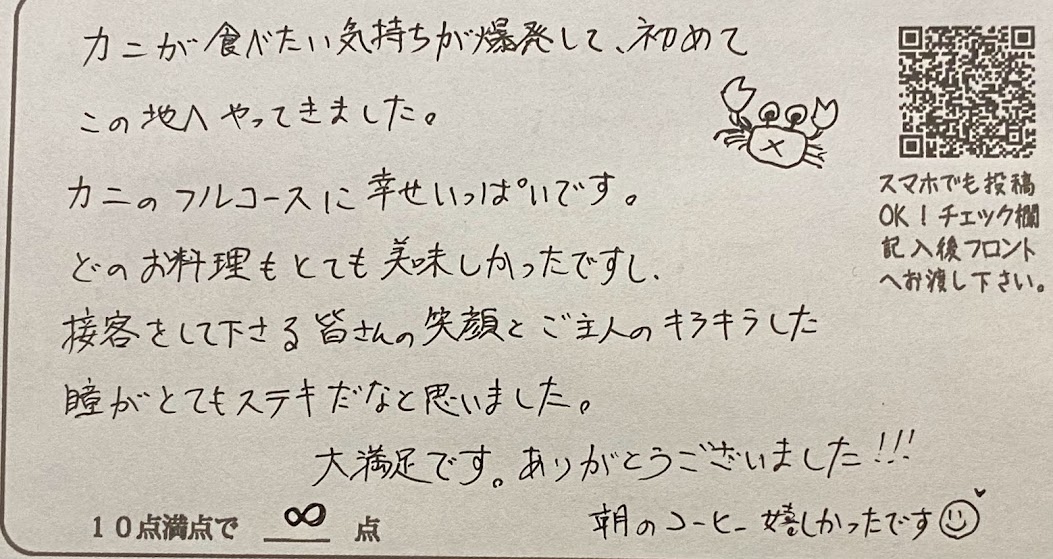 カニが食べたい気持ちが爆発して、初めて
この地へやってきました。
カニのフルコースに幸せいっぱいです。
どのお料理もとても美味しかったですし、
接客をして下さる皆さんの笑顔とご主人のキラキラした
瞳がとてもステキだなと思いました。
大満足です。ありがとうございました!!!
10点満点で ∞ 点
朝のコーヒー嬉しかったです
スマホでも投稿
OK！チェック欄
記入後フロント
へお渡し下さい。